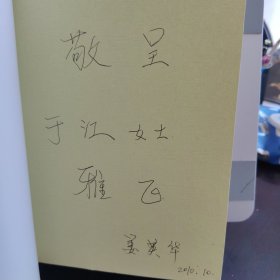 敬呈
于江女士
雅正
姜英华
2010.10.